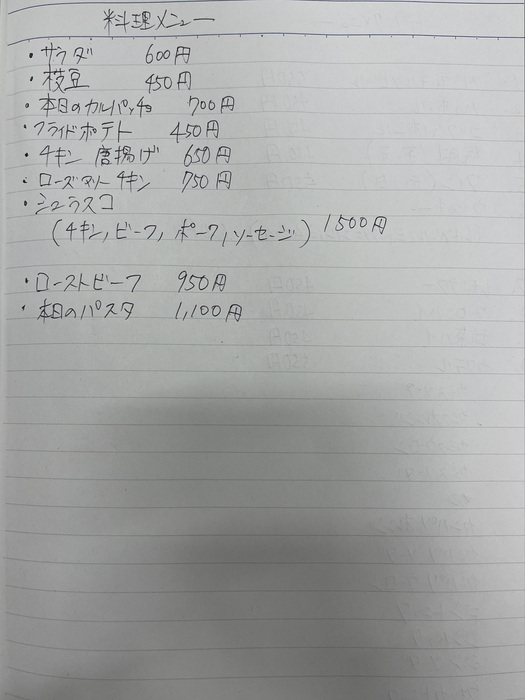 料理メニュー
・サラダ 600円
・枝豆 450円
・本日のカルパッチョ 700円
・フライドポテト 450円
・チキン 唐揚げ 650円
・ローズマリーチキン 750円
・シュラスコ
(チキン, ビーフ, ポーク, ソーセージ) 1500円
・ローストビーフ 950円
・本日のパスタ 1,100円